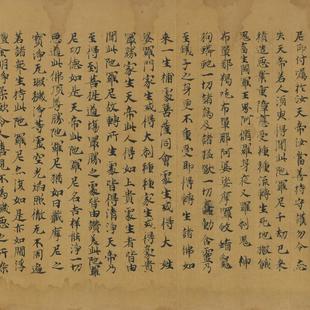 尼印付囑於汝天帝汝當善持守護勿令忘
失天帝若人須臾得聞此陁羅尼千劫已來
積造惡業重障應受種種流轉生死地獄餓
鬼畜生閻羅王界阿脩羅身夜叉羅剎鬼神
布單那羯吒布單那阿婆娑摩囉蚊虻龜
狗蟒虵一切諸鳥及諸猛獸一切蠢動含靈乃
至蟻子之身更不重受即得轉生諸佛如
來一生補處菩薩同會處生或得大姓
婆羅門家生或得大剎利種家生或得豪貴
最勝家生天帝此人得如上貴處生者皆由
聞此陁羅尼故轉所生處皆得清淨天帝乃
至得到菩提道場最勝之處皆由讚美此陁羅
尼功德如是天帝此陁羅尼名吉祥能淨一切
惡道此佛頂尊勝陁羅尼猶如日藏摩尼之
寶淨无瑕穢淨等虛空光焰照徹无不周遍
若諸衆生持此陁羅尼亦復如是亦如閻浮
檀金明淨柔軟令人喜見不為穢惡之所染